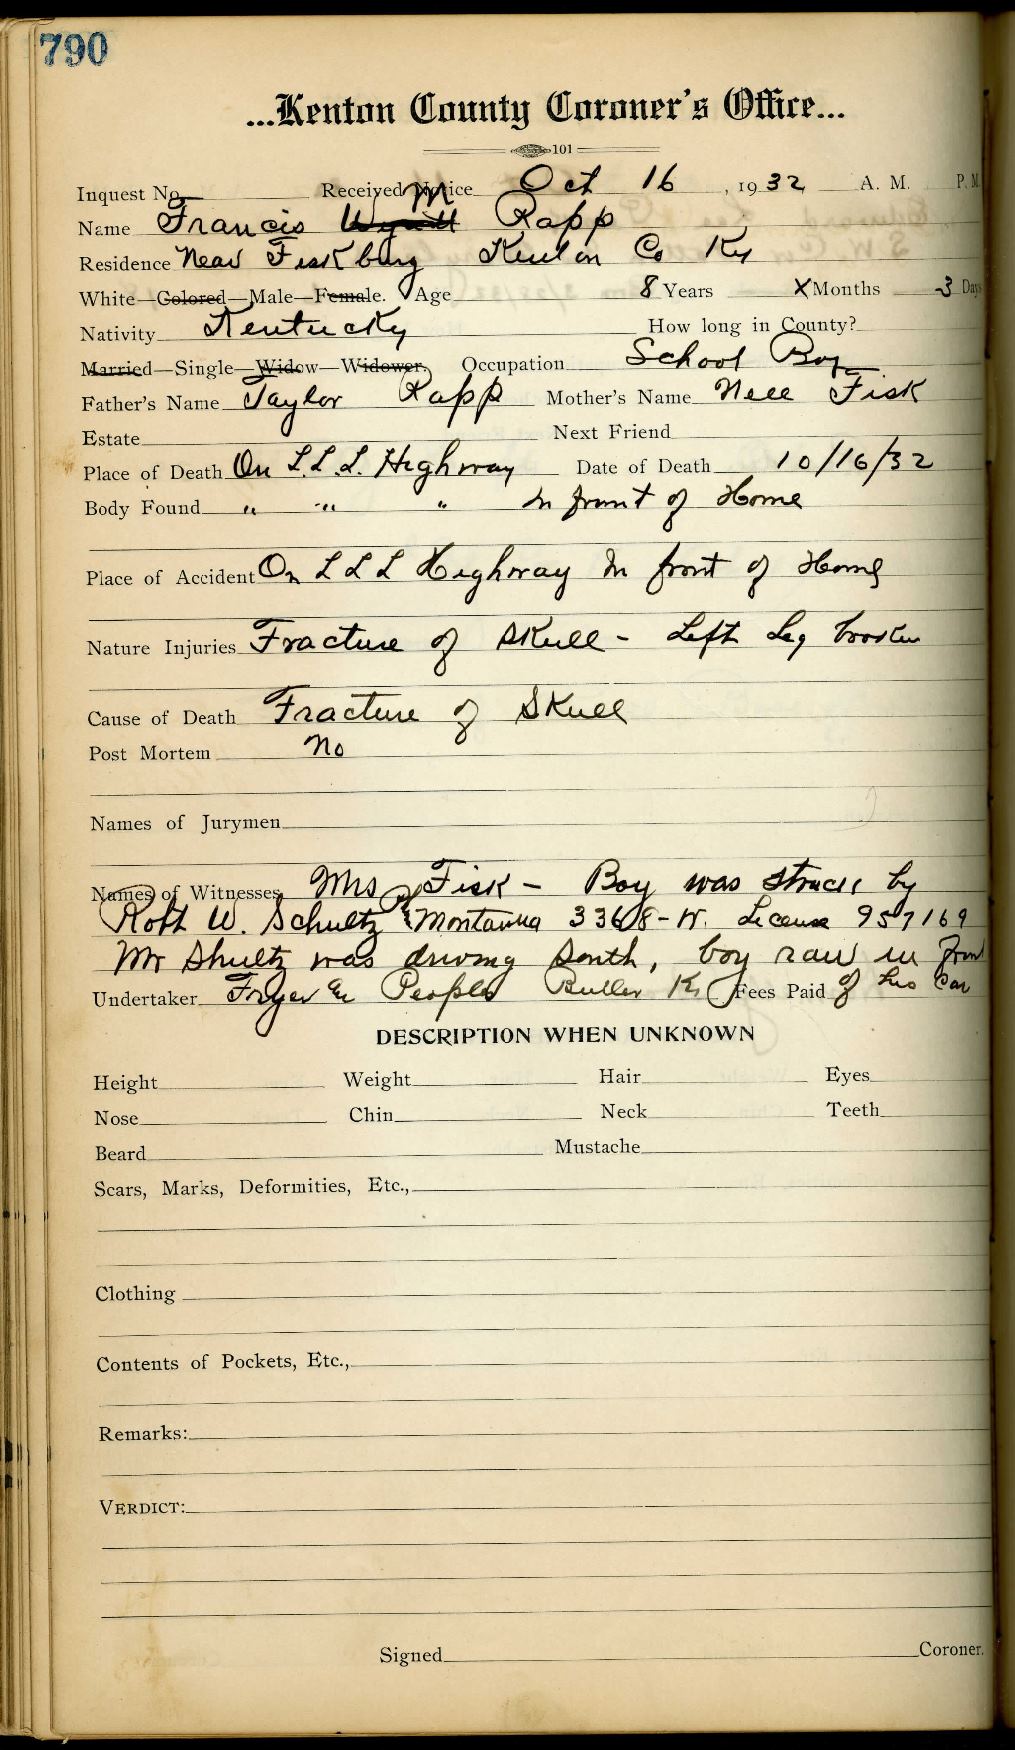 790
...Kenton County Coroner's Office...
101
Inquest No. Received Notice Oct 16, 1932 A. M. P. M.
Name Francis M Wyatt Rapp
Residence Near Fiskburg Kenton Co Ky
White—Colored—Male—Female. Age 8 Years X Months 3 Days
Nativity Kentucky How long in County?
Married—Single—Widow—Widower. Occupation School Boy
Father's Name Taylor Rapp Mother's Name Nell Fisk
Estate Next Friend
Place of Death On L.L.L. Highway Date of Death 10/16/32
Body Found " " " In front of Home
Place of Accident On L L L Highway In front of Home
Nature Injuries Fracture of Skull - Left Leg broken
Cause of Death Fracture of Skull
Post Mortem No
Names of Jurymen
Names of Witnesses Mrs Fisk - Boy was struck by
Robt W. Schultz Montanna 3368-W. License 957169
Mr Shultz was driving South, boy ran in front
Undertaker Fryer & Peoples Butler Ky Fees Paid of his Car
DESCRIPTION WHEN UNKNOWN
Height Weight Hair Eyes
Nose Chin Neck Teeth
Beard Mustache
Scars, Marks, Deformities, Etc.,
Clothing
Contents of Pockets, Etc.,
Remarks:
VERDICT:
Signed Coroner.